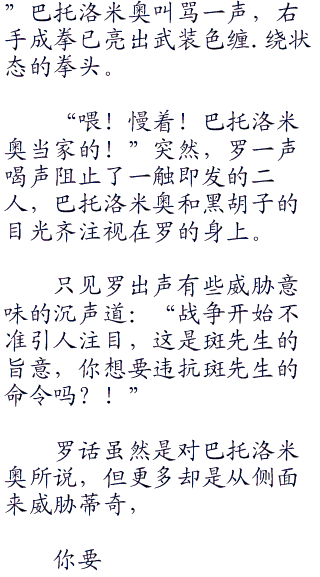 ”巴托洛米奥叫骂一声，右
手成拳已亮出武装色缠.绕状
态的拳头。
“喂！慢着！巴托洛米
奥当家的！”突然，罗一声
喝声阻止了一触即发的二
人，巴托洛米奥和黑胡子的
目光齐注视在罗的身上。
只见罗出声有些威胁意
味的沉声道：“战争开始不
准引人注目，这是斑先生的
旨意，你想要违抗斑先生的
命令吗？！”
罗话虽然是对巴托洛米
奥所说，但更多却是从侧面
来威胁蒂奇，
你要